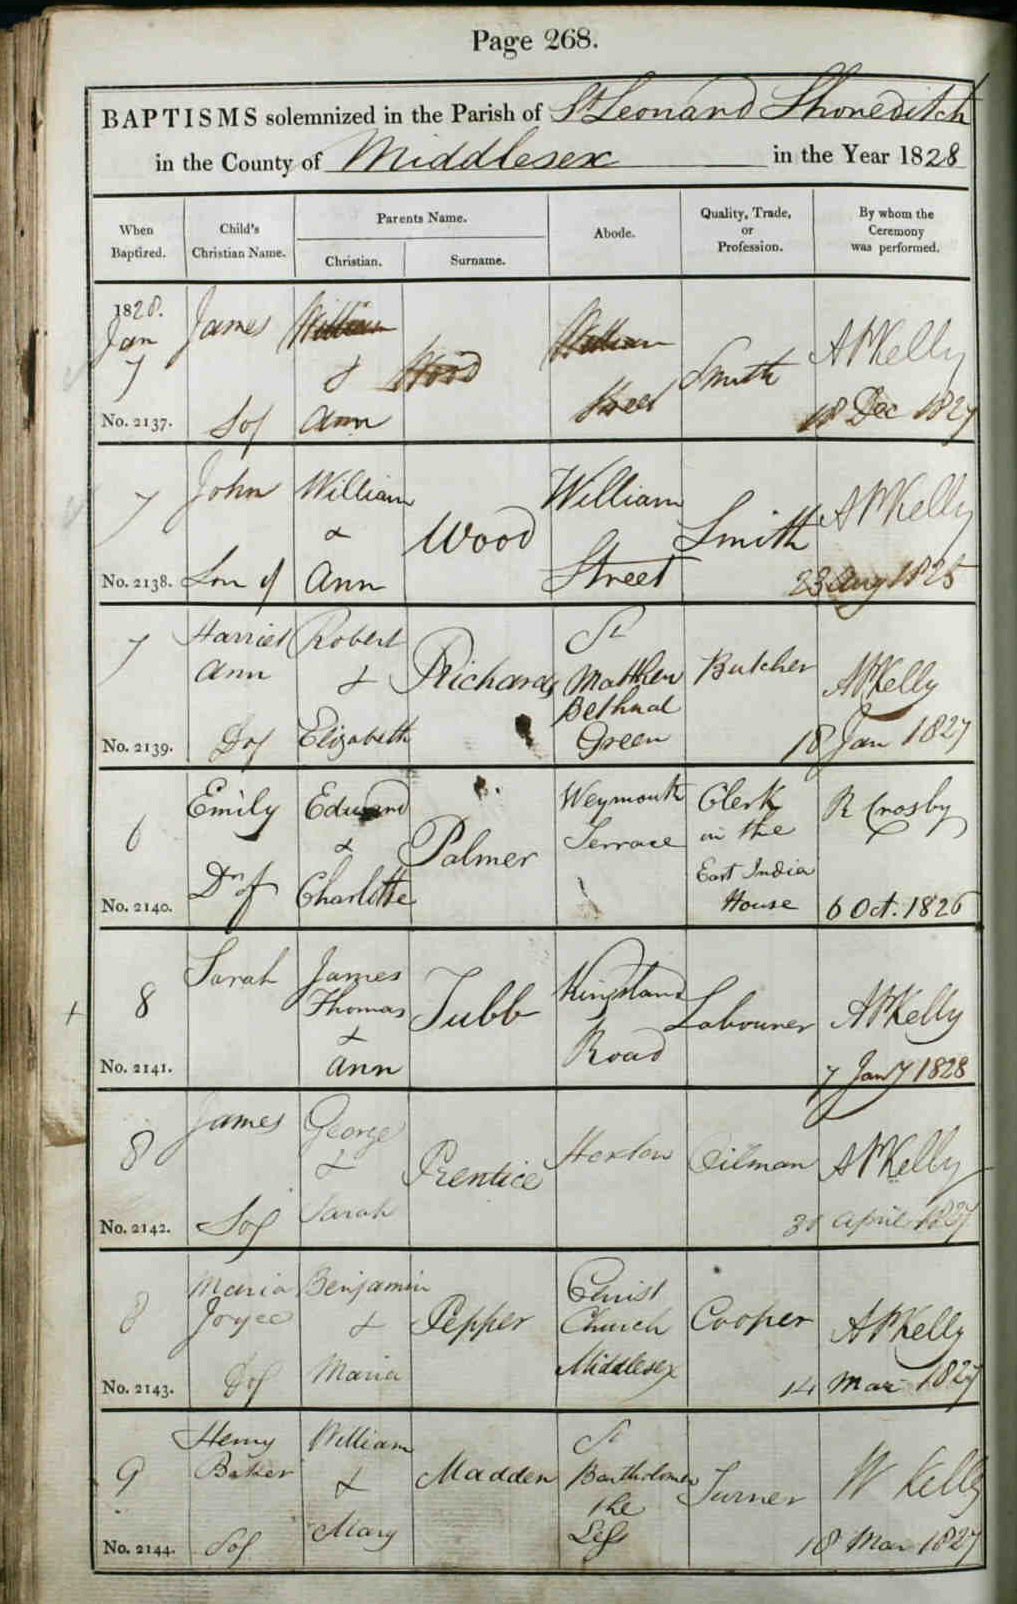 Page 268.
BAPTISMS solemnized in the Parish of St Leonard Shoreditch
in the County of Middlesex in the Year 1828
When Baptized. Child's Christian Name. Parents Name. Christian. Surname. Abode. Quality, Trade, or Profession. By whom the Ceremony was performed.
1828.
Jan
7
No. 2137.
James
Sof
William
&
Ann
Wood
William
Street
Smith
AP Kelly
18 Dec 1827
7
No. 2138.
John
Son of
William
&
Ann
Wood
William
Street
Smith
AP Kelly
23 Aug 1825
7
No. 2139.
Harriet
Ann
Dof
Robert
&
Elizabeth
Richards
St
Matthew
Bethnal
Green
Butcher
AP Kelly
18 Jan 1827
6
No. 2140.
Emily
Dr of
Edward
&
Charlotte
Palmer
Weymouth
Terrace
Clerk
in the
East India
House
R Crosby
6 Oct. 1826
8
No. 2141.
Sarah
James
Thomas
&
Ann
Tubb
Kingsland
Road
Labourer
AP Kelly
7 Jany 1828
8
No. 2142.
James
Sof
George
&
Sarah
Prentice
Hoxton
Oilman
AP Kelly
April 1827
8
No. 2143.
Maria
Joyce
Dof
Benjamin
&
Maria
Pepper
Christ
Church
Middlesex
Cooper
AP Kelly
14 Mar 1827
9
No. 2144.
Henry
Baker
Sof
William
&
Mary
Madden
St
the
Less
Turner
W Kelly
18 Mar 1827